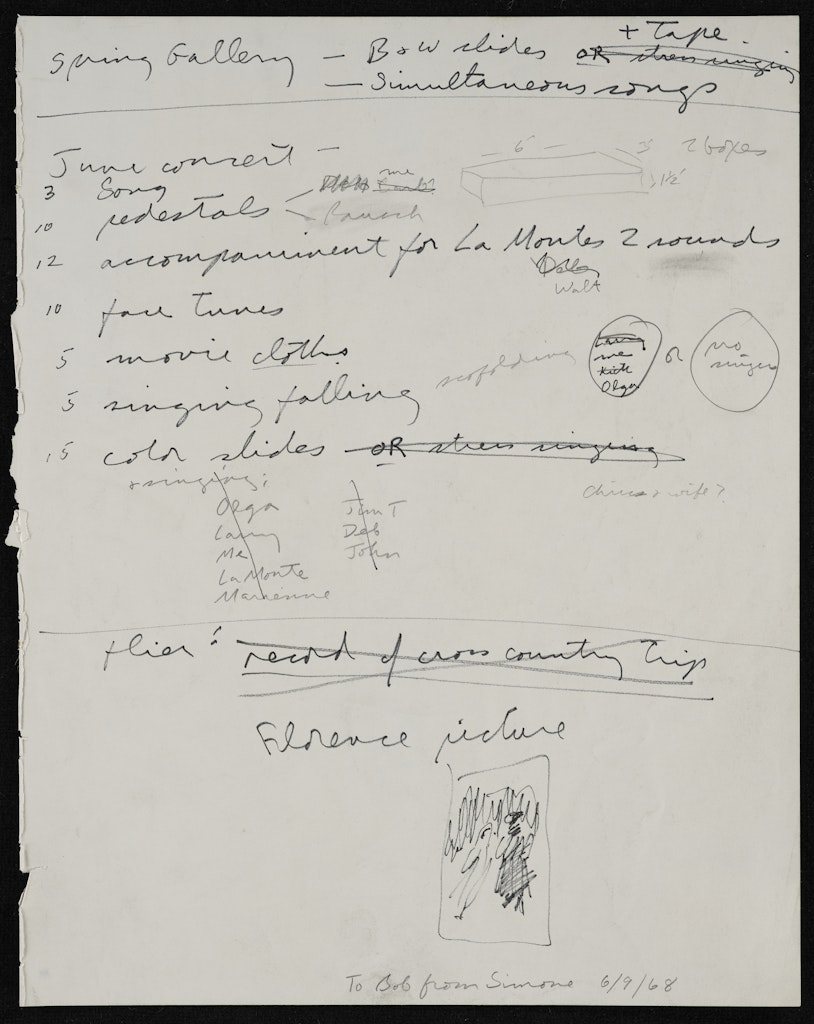 Spring Gallery — B & W slides + Tape OR stress singing
— Simultaneous songs
June concert —
6 3' 2 boxes
1½'
3 Song
me
10 pedestals
12 accompaniment for La Montes 2 sounds
Walt
10 face tunes
5 movie cloths
5 singing falling scofolding
Larry
me
Olga
or no singers
15 color slides OR stress singing
+ singing:
chriss & wife?
Olga Jim T
Larry Deb
Me John
LaMonte
Marienne
flier: record of cross country trip
Florence picture
To Bob from Simone 6/9/68